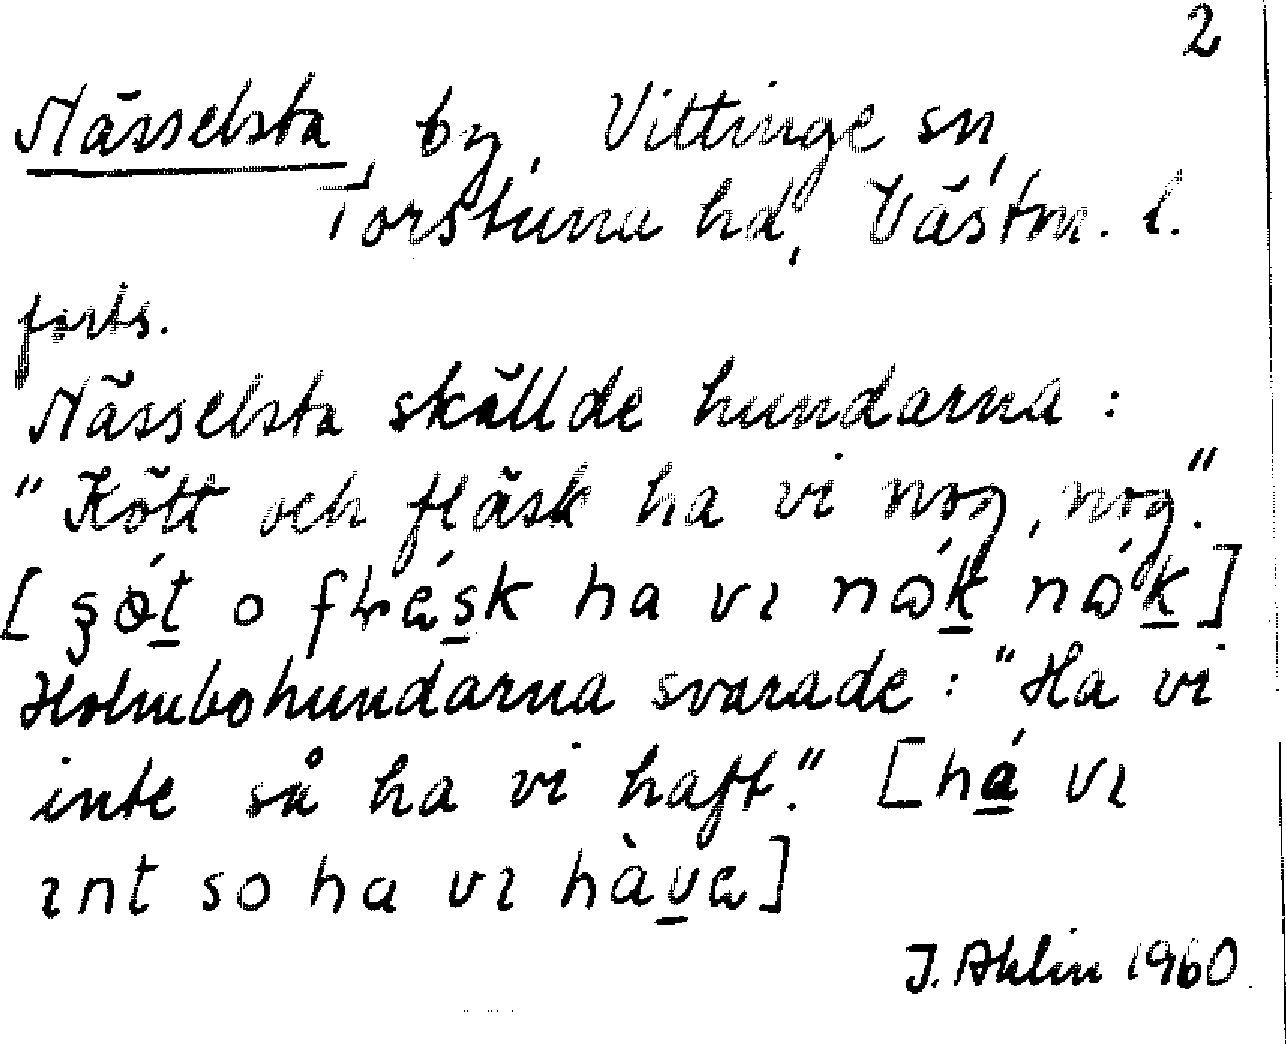 2
Nässelsta, by, Vittinge sn,
Torstuna hd, Västm. l.
forts.
Nässelsta skällde hundarna:
"Kött och fläsk ha vi nog, nog."
[ʂǿt o flǽsk ha vɩ nɷ́k nɷ́k]
Holmbohundarna svarade: "Ha vi
inte så ha vi haft." [há vɩ
ɩnt so ha vɩ hàva]
J. Ahlin 1960.